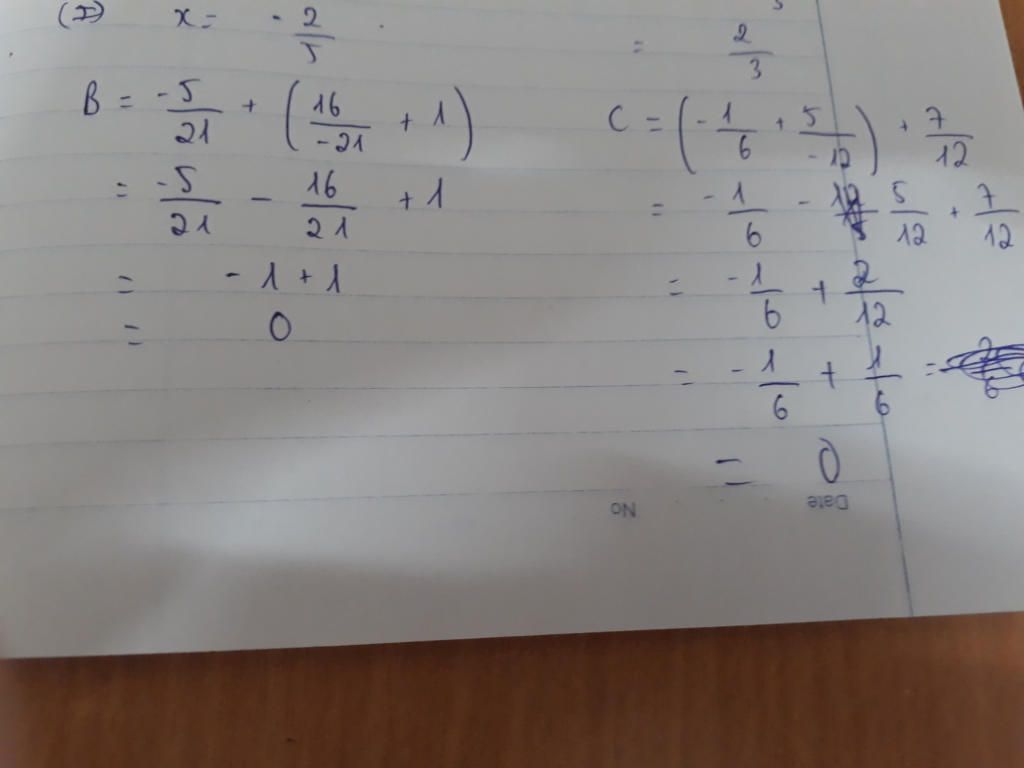 (I) x = - 2/5 .
= 2/3
B = -5/21 + (16/-21 + 1)
= -5/21 - 16/21 + 1
= - 1 + 1
= 0
C = (-1/6 + 5/-12) + 7/12
= -1/6 - 5/12 + 7/12
= -1/6 + 2/12
= -1/6 + 1/6 =
= 0
No Date